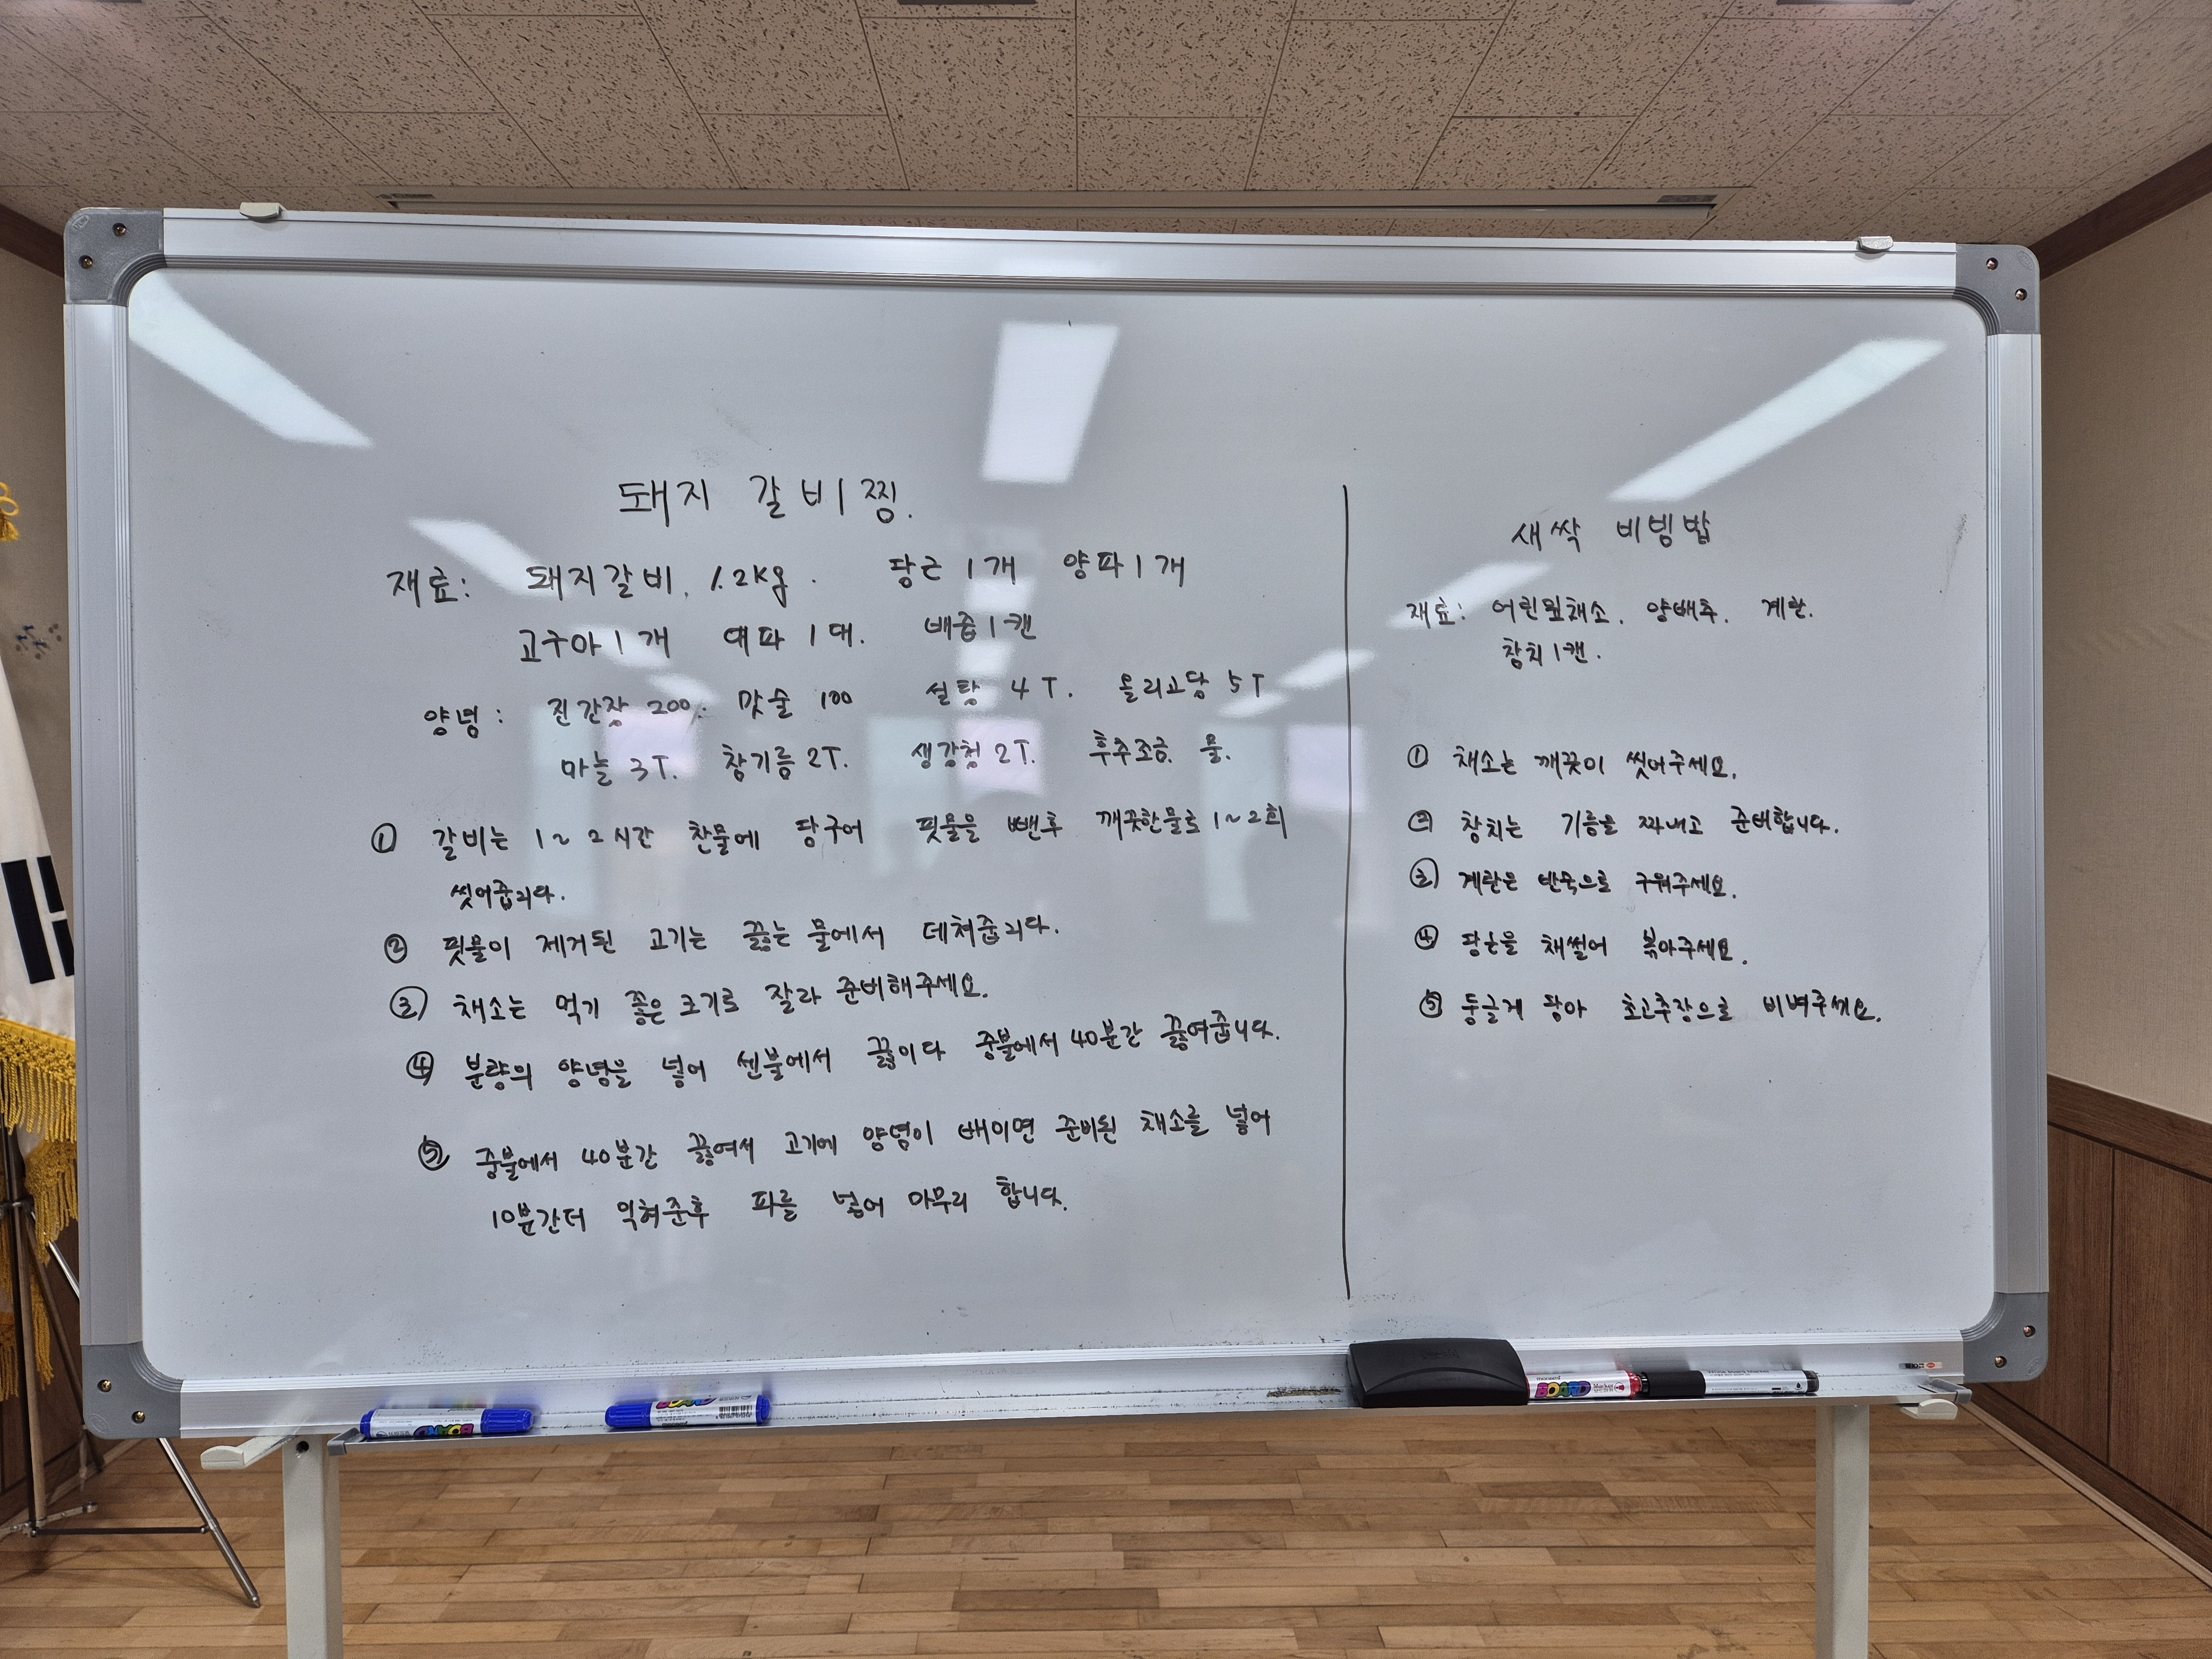 돼지 갈비찜.
재료: 돼지갈비. 1.2kg. 당근 1개 양파 1개
고구마 1개 대파 1대. 배즙 1캔
양념: 진간장 200. 맛술 100 설탕 4T. 올리고당 5T
마늘 3T. 참기름 2T. 생강청 2T. 후추조금. 물.
① 갈비는 1~2시간 찬물에 담구어 핏물을 뺀후 깨끗한물로 1~2회
씻어줍니다.
② 핏물이 제거된 고기는 끓는 물에서 데쳐줍니다.
③ 채소는 먹기 좋은 크기로 잘라 준비해주세요.
④ 분량의 양념을 넣어 센불에서 끓이다 중불에서 40분간 끓여줍니다.
⑤ 중불에서 40분간 끓여서 고기에 양념이 배이면 준비된 채소를 넣어
10분간더 익혀준후 파를 넣어 마무리 합니다.
새싹 비빔밥
재료: 어린잎채소. 양배추. 계란.
참치 1캔.
① 채소는 깨끗이 씻어주세요.
② 참치는 기름을 짜내고 준비합니다.
③ 계란은 반숙으로 구워주세요.
④ 당근을 채썰어 볶아주세요.
⑤ 둥글게 담아 초고추장으로 비벼주세요.
BOARD
BOARD
BOARD Marker